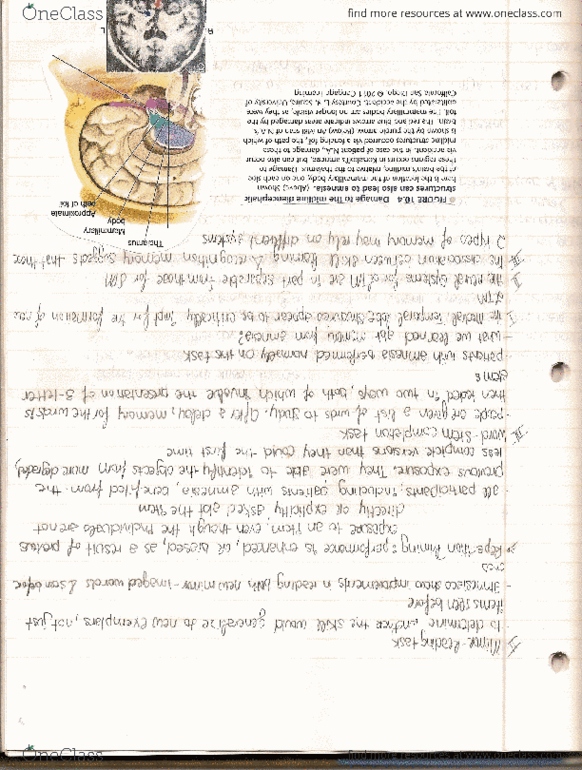 OneClass
find more resources at www.oneclass.com
Mirror-Reading task
- to determine whether the skill would generalize to new exemplars, not just
items seen before
- Amnesiacs show improvements in reading both new mirror-imaged words & seen before
ones
Repetition Priming: performance is enhanced, or biased, as a result of previous
exposure to an item, even though the individuals are not
directly or explicitly asked abt the item
- all participants, including patients with amnesia, benefited from the
previous exposure. They were able to identify the objects from more degraded,
less complete versions than they could the first time
Word-stem completion task
- people are given a list of words to study. After a delay, memory for the words is
then tested in two ways, both of which involve the presentation of 3-letter
stems
- patients with amnesia performed normally on the task
- what we learned abt memory from amnesia?
I the medial temporal lobe structures appear to be critically impt for the formation of new
LTM
II the neural systems for LTM are in part separable from those for STM
III the dissociation between skill learning & recognition memory suggests that these
2 types of memory may rely on different systems
FIGURE 10.4 Damage to the midline diencephalic
structures can also lead to amnesia. (Above) Shown
here is the location of the mammillary body, one on each side
of the brain's midline, relative to the thalamus. Damage to
these regions occurs in Korsakoff's amnesia, but can also occur
via accident. In the case of patient N.A., damage to these
midline structures occurred via a fencing foil, the path of which
is shown by the purple arrow. (Below) An MRI scan of N.A.'s
brain. The red and blue arrows indicate areas damaged by the
foil. The mammillary bodies are no longer visible, as they were
obliterated by the accident. Courtesy L. R. Squire, University of
California San Diego. © 2011 Cengage Learning
Thalamus
Mammillary
body
Approximate
path of foil
R
L
OneClass
find more resources at www.oneclass.com